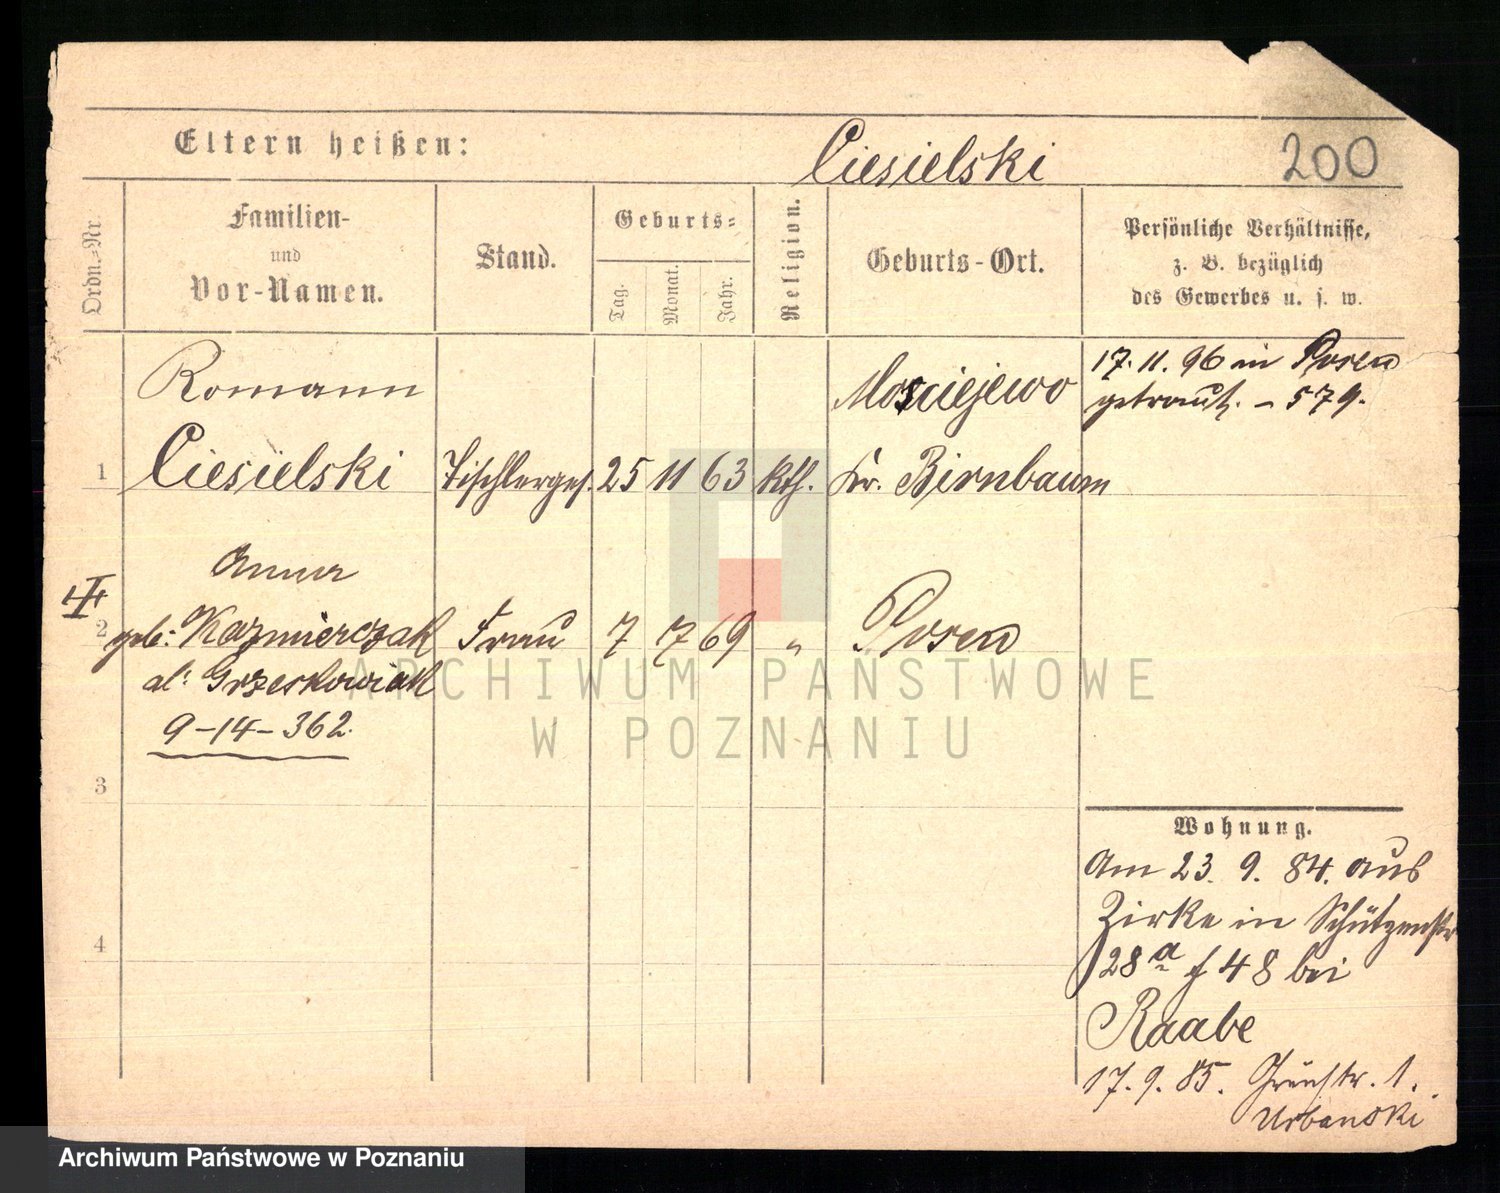 Eltern heißen:
Ciesielski
200
Ordn.-Nr.
Familien-
und
Vor-Namen.
Stand.
Geburts-
Tag.
Monat.
Jahr.
Religion.
Geburts-Ort.
Persönliche Verhältnisse,
z. B. bezüglich
des Gewerbes u. s. w.
Romann
Mosciejewo
17. 11. 96 in Posen
getraut. – 579.
1 Ciesielski Tischlerges. 25 11 63 kth. Kr. Birnbaum
Anna
2 geb: Kazmierczak Frau 7 17 69 " Posen
al: Grzeskowiak
9–14–362.
3
4
Wohnung.
Am 23. 9. 84. aus
Zirke in Schützenstr
28a 48 bei
Raabe
17. 9. 85. Grünstr. 1.
Urbanski
ARCHIWUM PAŃSTWOWE
W POZNANIU
Archiwum Państwowe w Poznaniu